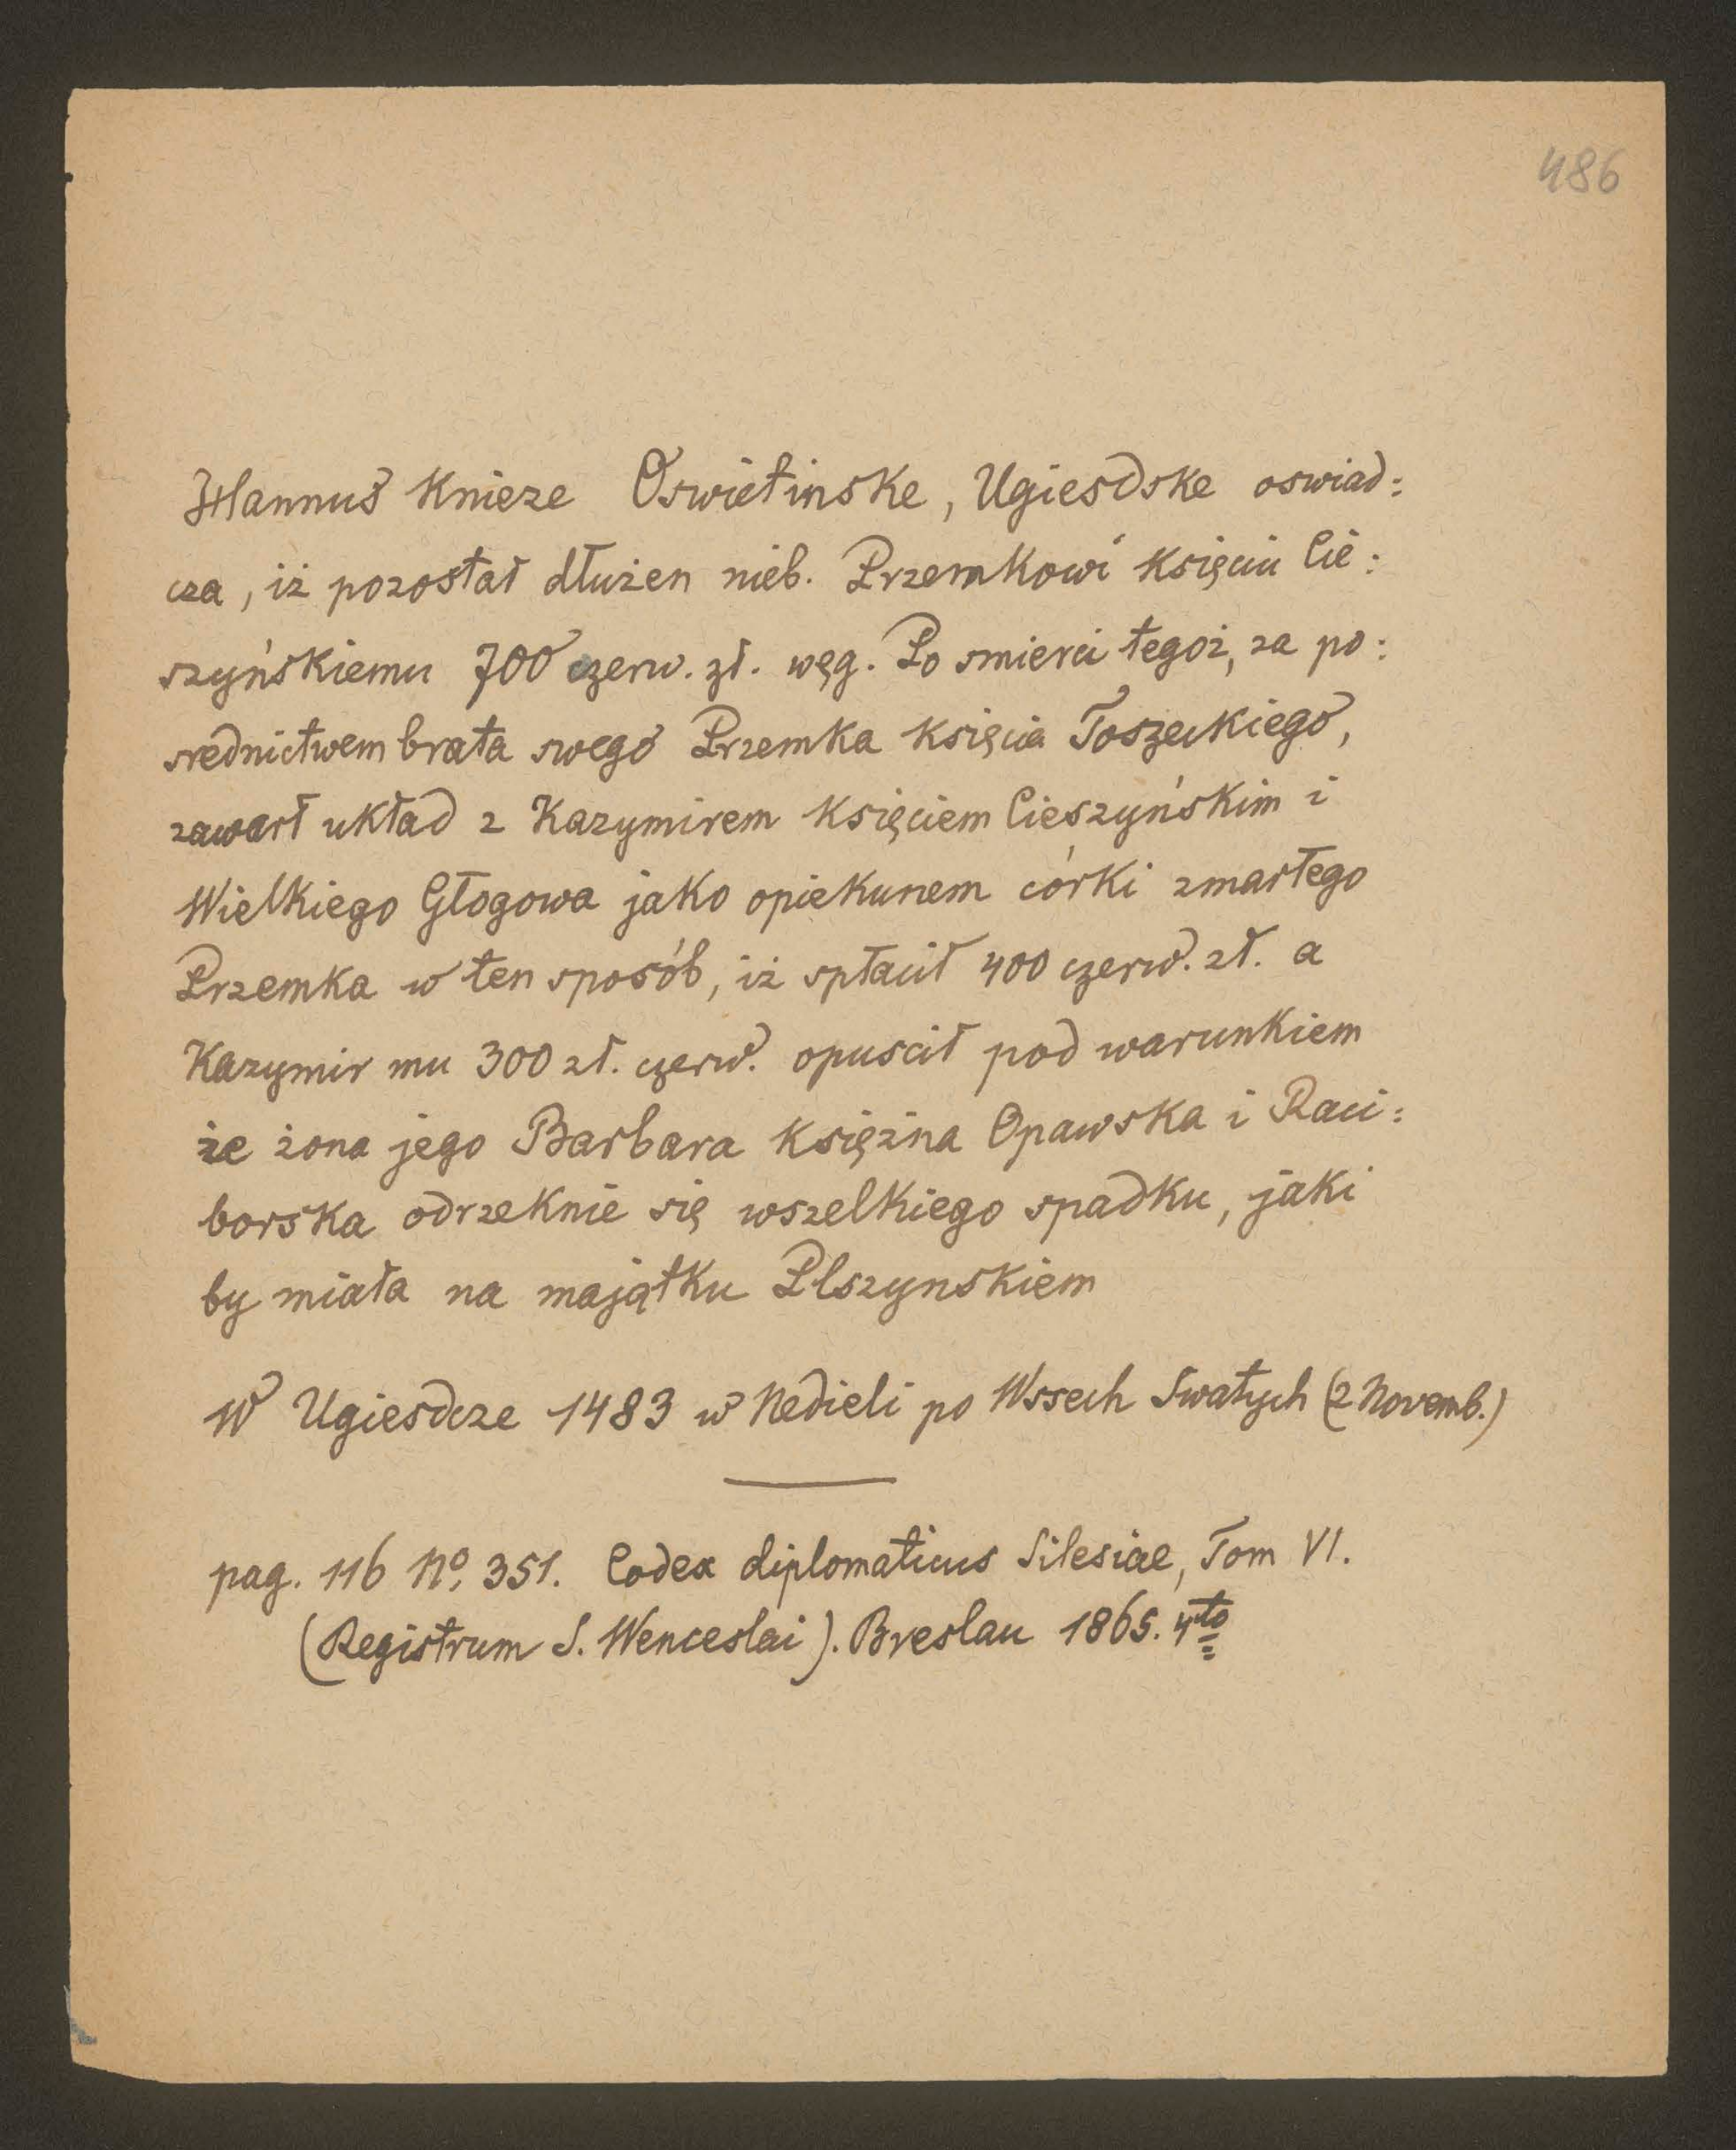 486
Hannuš Knieze Oswietinske, Ugiesdske oswiad=
cza, iż pozostał dłużen nieb. Przemkowi księciu Cie=
szyńskiemu 700 czerw. zł. węg. Po smierci tegoż, za po=
srednictwem brata swego Przemka księcia Toszeckiego,
zawarł układ z Kazymirem księciem Cieszyńskim i
Wielkiego Głogowa jako opiekunem córki zmarłego
Przemka w ten sposób, iż spłacił 400 czerw. zł. a
Kazymir mu 300 zł. czerw. opuscił pod warunkiem
że żona jego Barbara księżna Opawska i Raci=
borska odrzeknie się wszelkiego spadku, jaki
by miała na majątku Plszynskiem
W Ugiesdcze 1483 w Nedieli po Wssech Swatych (2 Novemb.)
pag. 116 No, 351. Codex diplomaticus Silesiae, Tom VI.
(Registrum S. Wenceslai). Breslau 1865. 4to